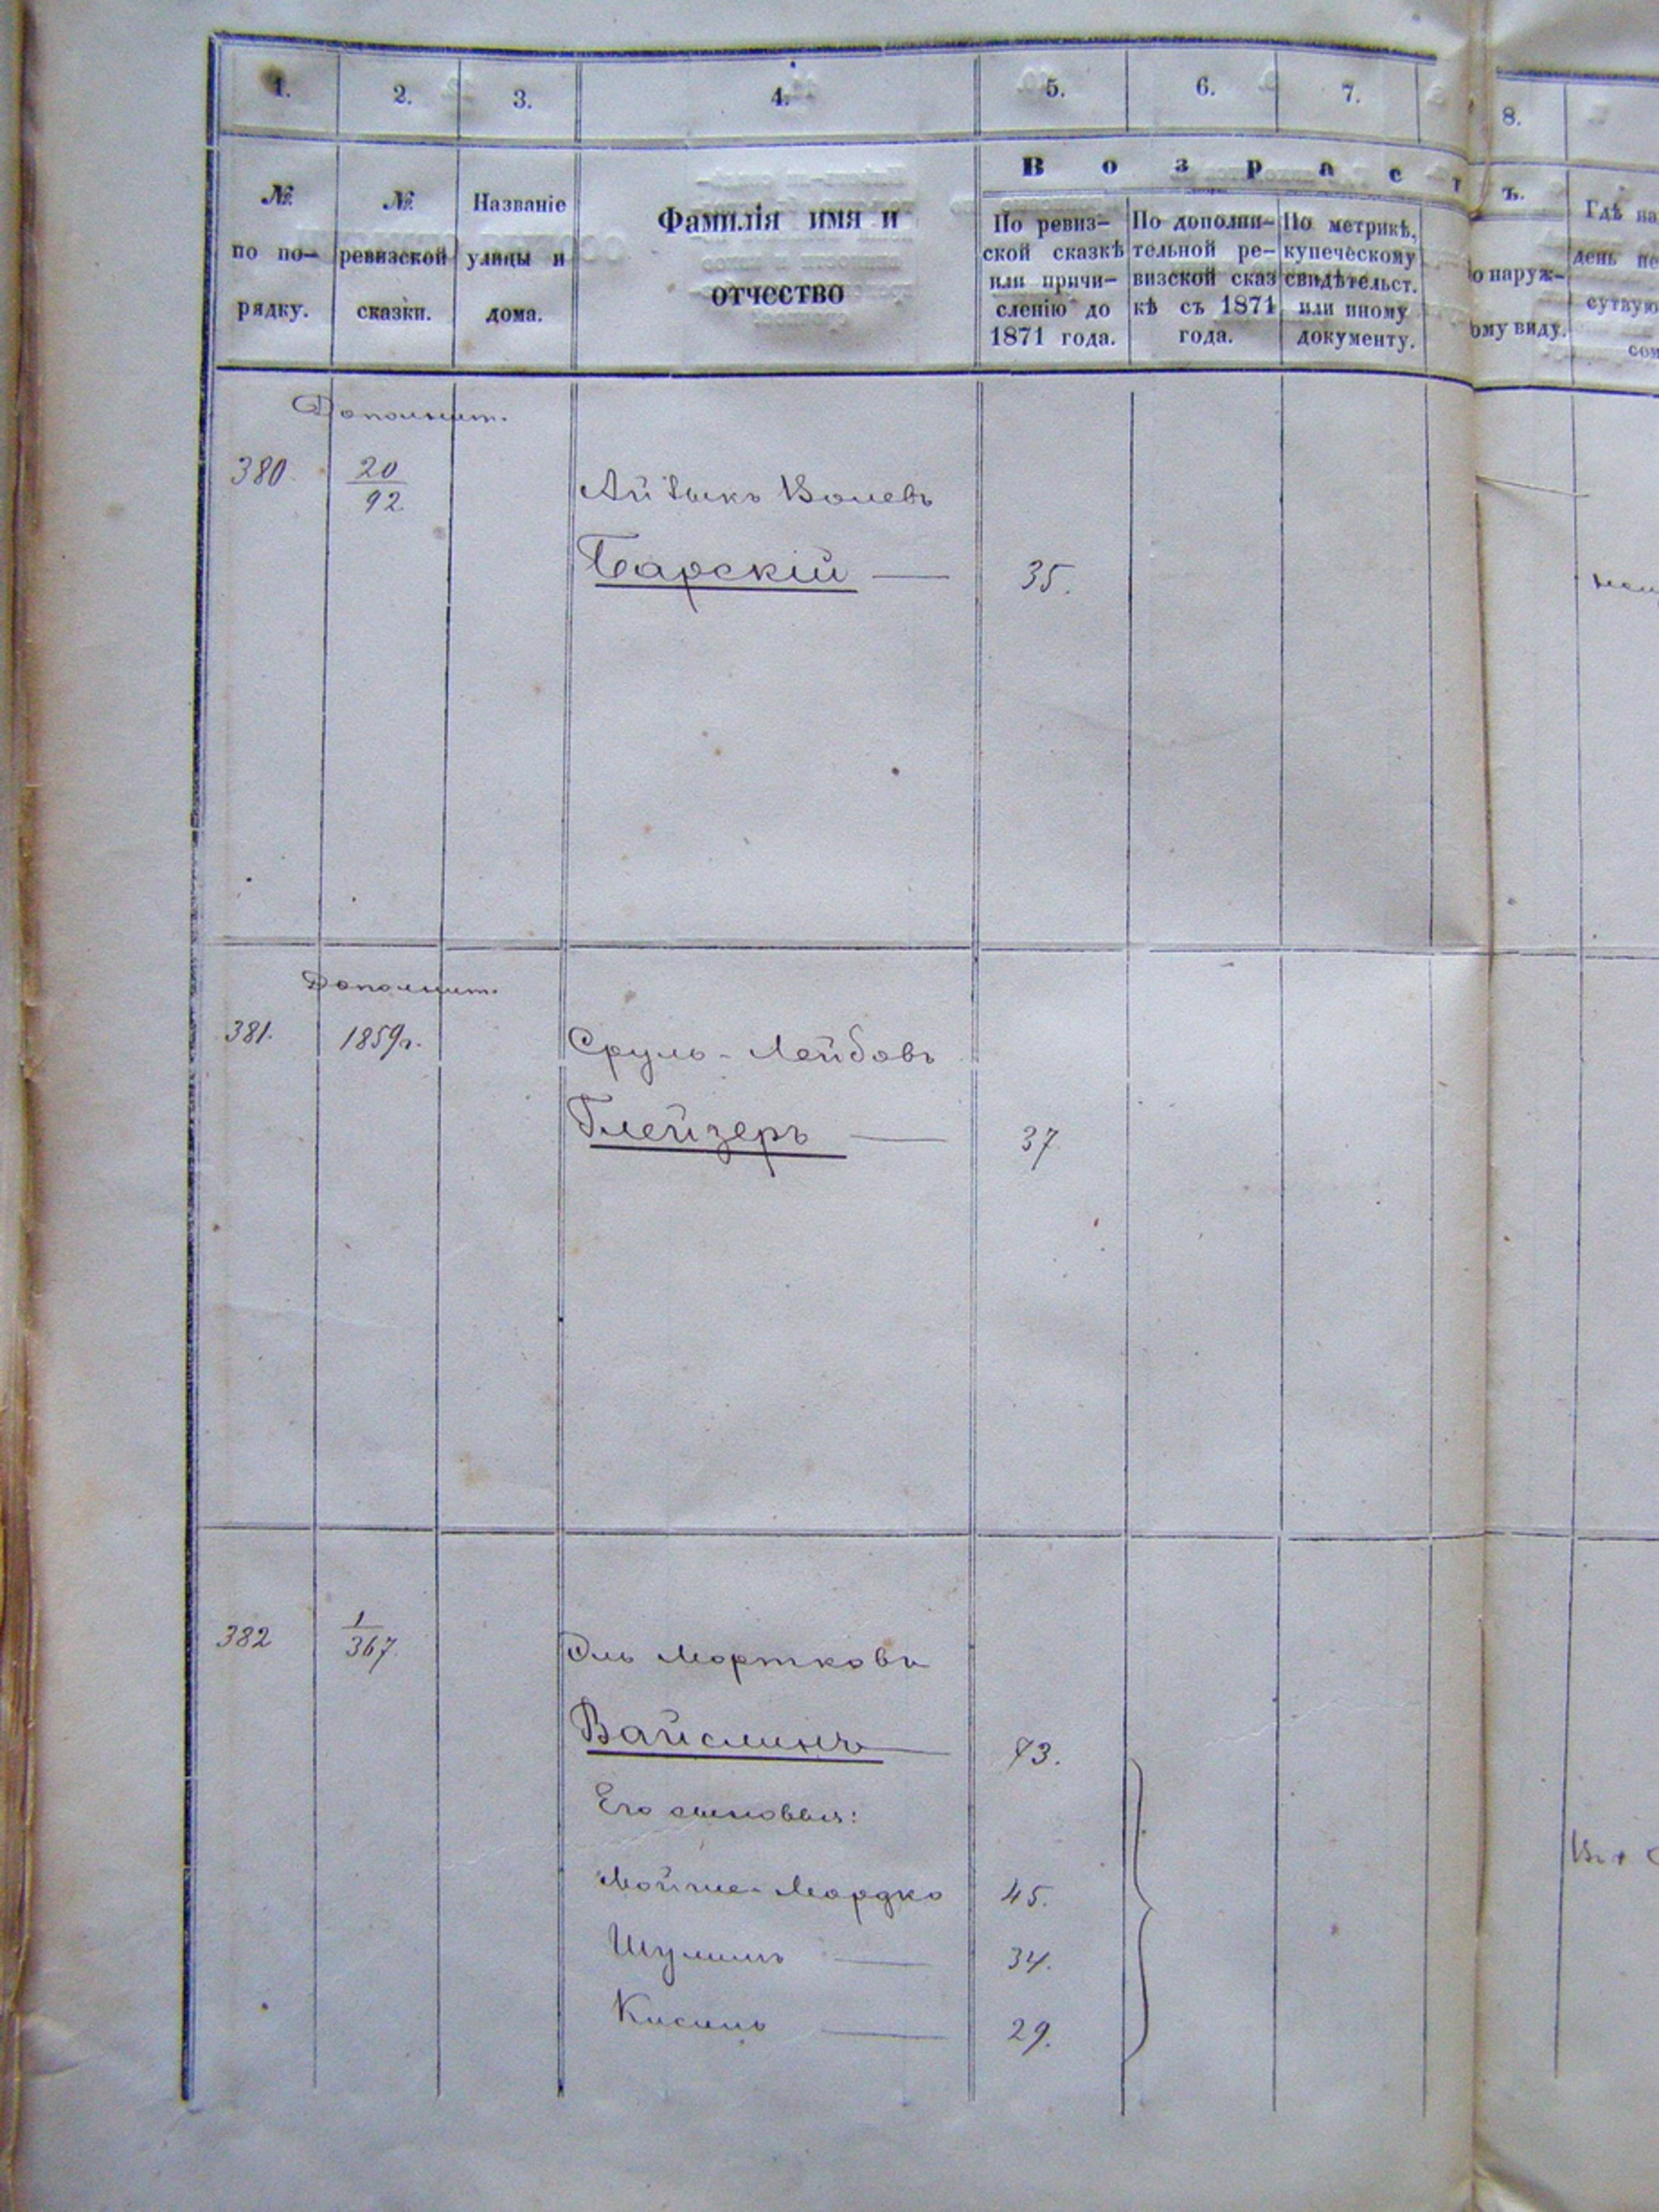 1. 2. 3. 4. 5. 6. 7. 8.
В о з р а с т ъ.
№ по по-рядку.
№ ревизской сказки.
Названіе улицы и дома.
Фамилія имя и
отчество
По ревиз-
ской сказкѣ
или причи-
сленію до
1871 года.
По дополни-
тельной ре-
визской сказ
кѣ съ 1871
года.
По метрикѣ,
купеческому
свидѣтельст.
или иному
документу.
о наруж-
ому виду.
Гдѣ на
день не
сутвую
Дополнит.
380. 20/92. Айзикъ Волевъ
Барскій — 35.
Дополнит.
381. 1859г. Сруль-Лейбовъ
Глейзеръ — 37
382 1/367. Эль Мортковъ
Вайслинъ — 73.
Его сыновья:
Мойше-Мордко 45.
Шулимъ — 34.
Кисиль — 29.